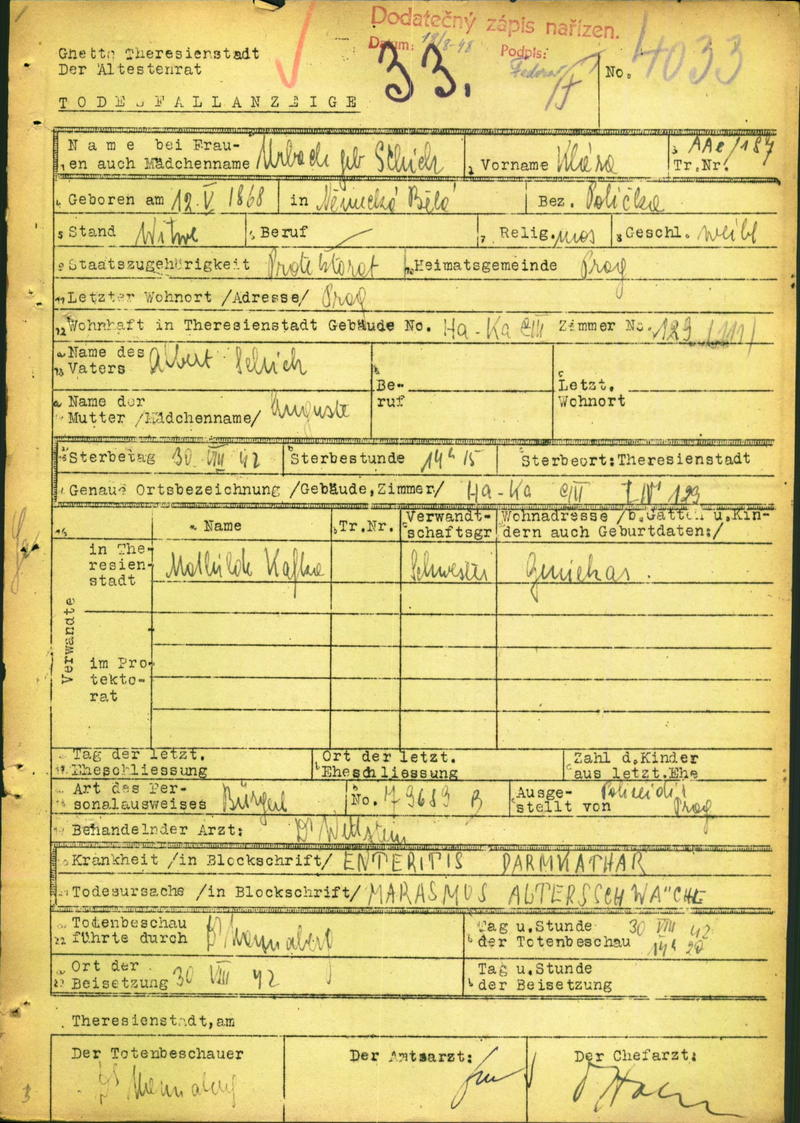 Dodatečný zápis nařízen.
Datum: 18/8-48 Podpis:
Ghetto Theresienstadt
Der Ältestenrat
33.
No. 4033
TODESFALLANZEIGE
Name bei Frau-
en auch Mädchenname Urbach geb Schick Vorname Klára Tr.Nr. AAe/187
Geboren am 12.V 1868 in Německá Bělá Bez. Polička
Stand Witwe Beruf Relig. mos Geschl. weibl
Staatszugehörigkeit Protektorat Heimatsgemeinde Prag
Letzter Wohnort /Adresse/ Prag
Wohnhaft in Theresienstadt Gebäude No. Ha-Ka Zimmer No. 123
Name des
Vaters Albert Schick Be-
ruf Letzt.
Wohnort
Name der
Mutter /Mädchenname/ Auguste
Sterbetag 30 VIII 42 Sterbestunde 14h 15 Sterbeort: Theresienstadt
Genaue Ortsbezeichnung /Gebäude, Zimmer/ Ha-Ka 123
Name Tr.Nr. Verwandt-
schaftsgr Wohnadresse /b. Gatten u. Kin-
dern auch Geburtdaten:/
Verwandte
in The-
resien-
stadt
Mathilde Kafka Schwester
im Pro-
tekto-
rat
Tag der letzt.
Eheschliessung Ort der letzt.
Eheschliessung Zahl d. Kinder
aus letzt. Ehe
Art des Per-
sonalausweises Bürgerl No. 79689 B Ausge-
stellt von Prag
Behandelnder Arzt: Dr Wettstein
Krankheit /in Blockschrift/ ENTERITIS DARMKATHAR
Todesursache /in Blockschrift/ MARASMUS ALTERSSCHWÄCHE
Totenbeschau
führte durch Tag u. Stunde
der Totenbeschau 30 VIII 42
Ort der
Beisetzung 30 VIII 42 Tag u. Stunde
der Beisetzung
Theresienstadt, am
Der Totenbeschauer Der Amtsarzt: Der Chefarzt: